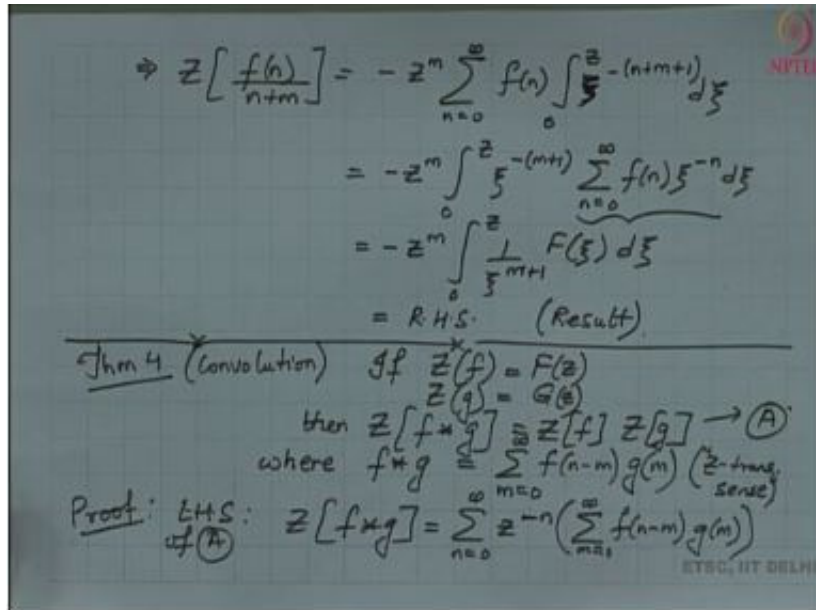 NPTEL
⇒ Z[f(n)/(n+m)] = - z^m ∑_{n=0}^{∞} f(n) ∫_0^z ξ^{-(n+m+1)} dξ
= - z^m ∫_0^z ξ^{-(m+1)} ∑_{n=0}^{∞} f(n) ξ^{-n} dξ
= - z^m ∫_0^z 1/ξ^{m+1} F(ξ) dξ
= R.H.S. (Result)
Thm 4 (Convolution) If Z(f) = F(z)
Z(g) = G(z)
then Z[f*g] = Z[f] Z[g] → Ⓐ
where f*g = ∑_{m=0}^{∞} f(n-m) g(m) (Z-trans. sense)
Proof: LHS of Ⓐ: Z[f*g] = ∑_{n=0}^{∞} z^{-n} (∑_{m=0}^{∞} f(n-m) g(m))
ETSC, IIT DELHI